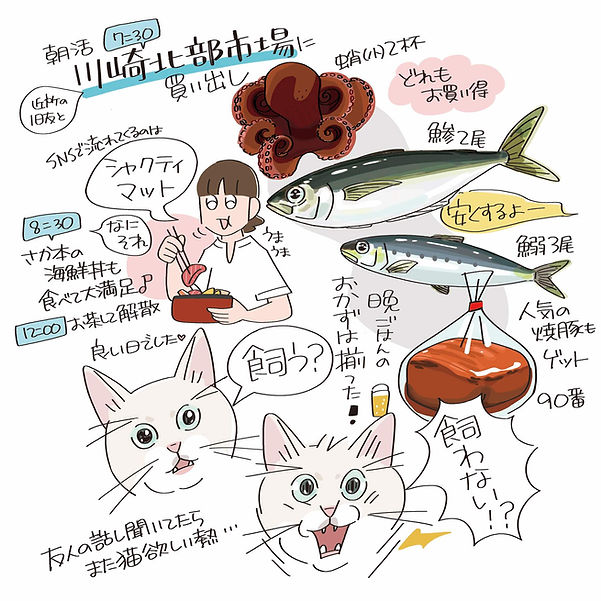 朝活
7:30
川崎北部市場に
買い出し
近所の
旧友と
蛸(小)2杯
どれも
お買い得
鯵2尾
SNSで流れてくるのは
シャクティ
マット
なに
それ
うま
うま
安くするよー
鰯3尾
8:30
さか本の
海鮮丼も
食べて大満足♪
12:00
お茶して解散
良い日でした♡
晩ごはんの
おかずは揃った!
人気の
焼豚も
ゲット
90番
飼う?
飼わ
ない!?
友人の話し聞いてたら
また猫欲しい熱…